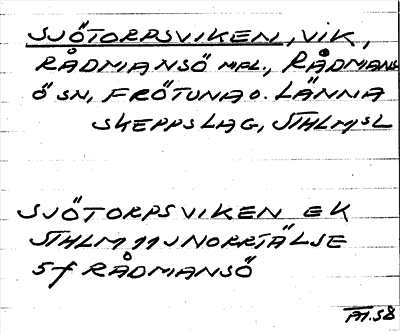 SJÖTORPSVIKEN, VIK,
RÅDMANSÖ MPL., RÅDMANS
Ö SN, FRÖTUNA O. LÄNNA
SKEPPSLAG, STHLMSL
SJÖTORPSVIKEN EK
STHLM 11 J NORRTÄLJE
5 f RÅDMANSÖ